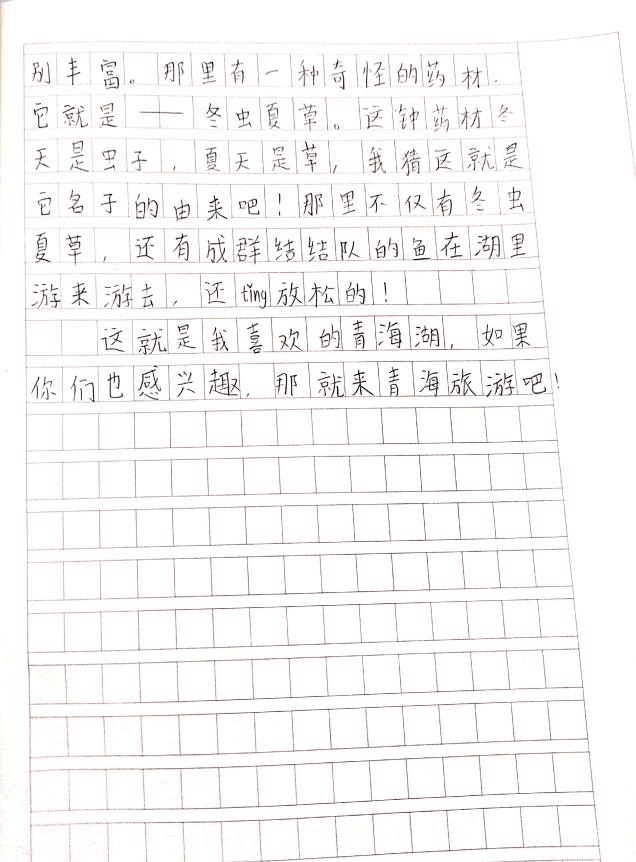 别丰富。那里有一种奇怪的药材.
它就是——冬虫夏草。这钟药材冬
天是虫子，夏天是草，我猜这就是
它名子的由来吧！那里不仅有冬虫
夏草，还有成群结结队的鱼在湖里
游来游去，还tǐng放松的！
这就是我喜欢的青海湖，如果
你们也感兴趣，那就来青海旅游吧！